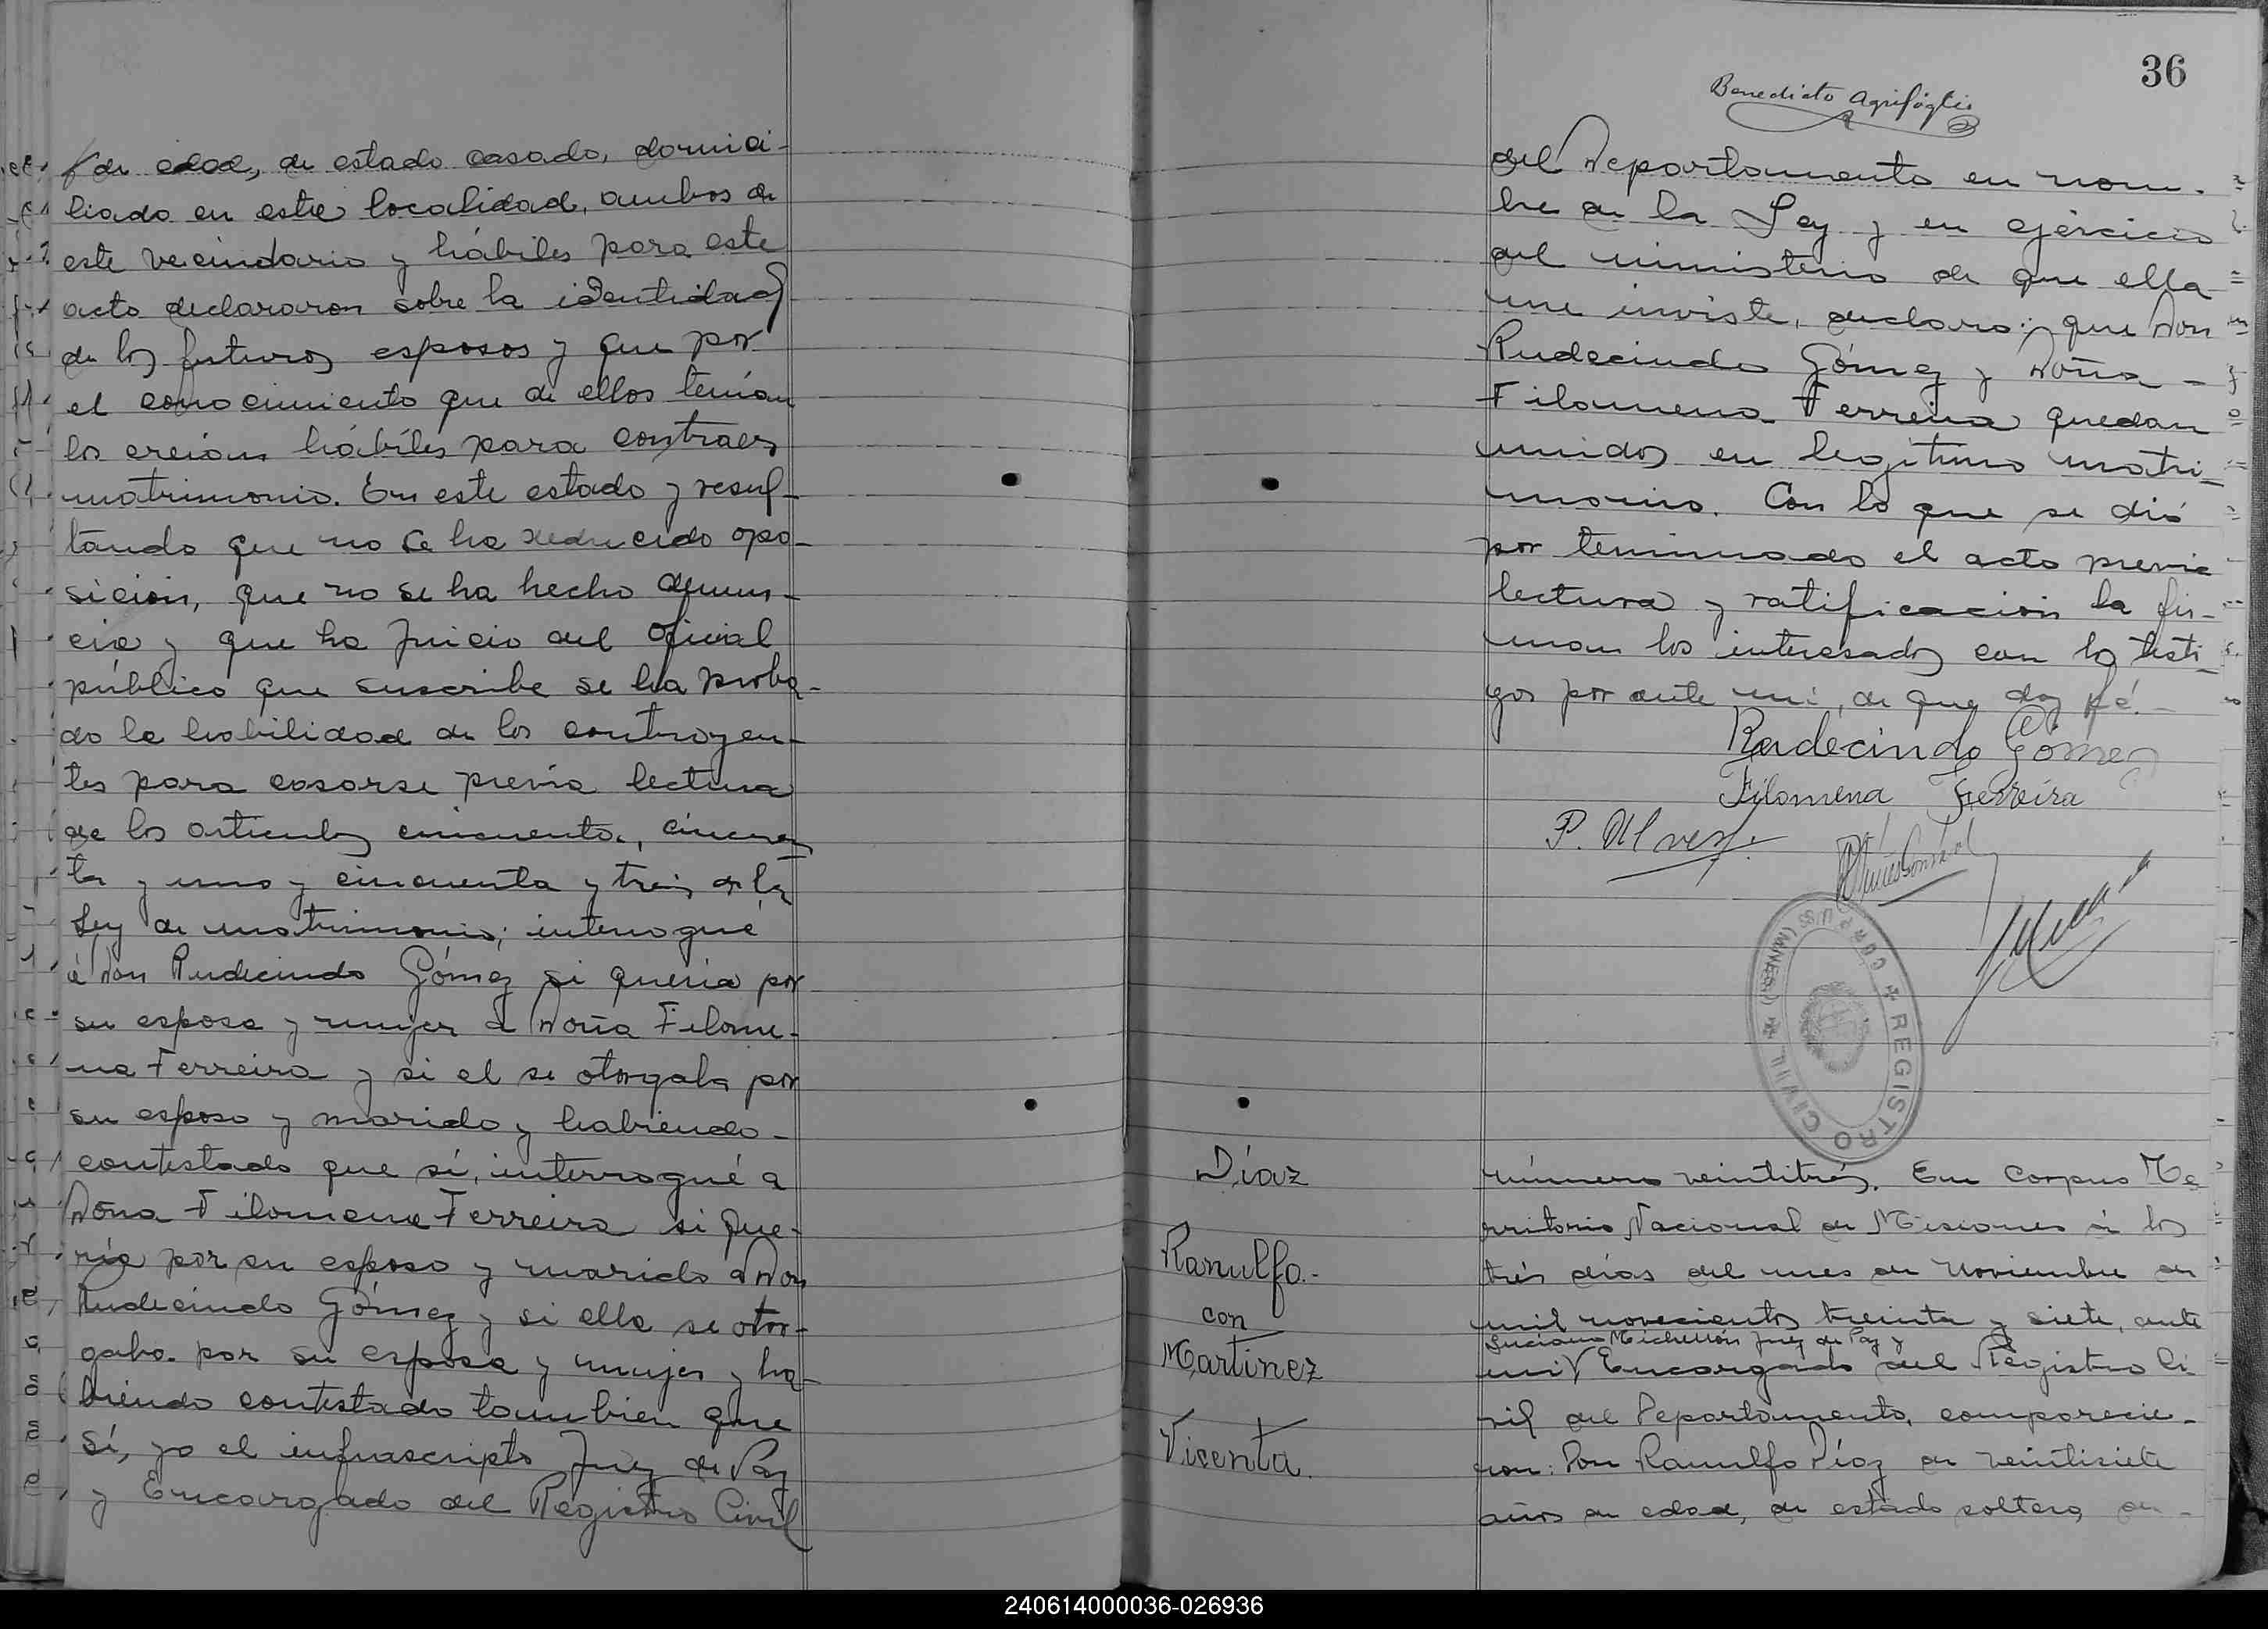 de edad, de estado casado, domici-
liado en esta localidad, ambos de
este vecindario y hábiles para este
acto declararon sobre la identidad
de los futuros esposos y que por
el conocimiento que de ellos tenían
los creían hábiles para contraer
matrimonio. En este estado y resul-
tando que no se ha deducido opo-
sición, que no se ha hecho denun-
cia y que ha juicio del oficial
público que suscribe se ha proba-
do la habilidad de los contrayen-
tes para casarse previa lectura
de los articulos cincuenta, cincuen
ta y uno y cincuenta y tres de la
Ley de matrimonio; interrogué
á Don Rudecindo Gómez si quería por
su esposa y mujer a Doña Filome-
na Ferreira y si el se otorgaba por
su esposo y marido y habiendo-
contestado que sí, interrogué a
Doña Filomena Ferreira si que-
ría por su esposo y marido a Don
Rudecindo Gómez y si ella se otor-
gaba por su esposa y mujer y ha-
biendo contestado tambien que
Sí, yo el infrascripto Juez de Paz
y Encargado del Registro Civil
36
Benedicto Agrifóglio
del Departamento en nom-
bre de la Ley y en ejercicio
del ministerio de que ella
me inviste, declaro: que Don
Rudecindo Gómez y Doña -
Filomena Ferreira quedan
unidos en legítimo matri-
monio. Con lo que se dió
por terminado el acto previa
lectura y ratificación la fir-
man los interesados con los testi-
gos por ante mí, de que doy fé.-
Rudecindo Gómez
Filomena Ferreira
P. Alvez
REGISTRO CIVIL CORPUS (MNES.)
Díaz
Ranulfo.-
con
Martinez
Vicenta.
número veintitrés. En Corpus Te
rritorio Nacional de Misiones á los
trés días del mes de Noviembre de
mil novecientos treinta y siete, ante
Luciano Michellón Juez de Paz y
mí Encargado del Registro Ci
vil del Departamento, comparecie-
ron: Don Ranulfo Díaz de veintisiete
años de edad, de estado soltero, de-
240614000036-026936